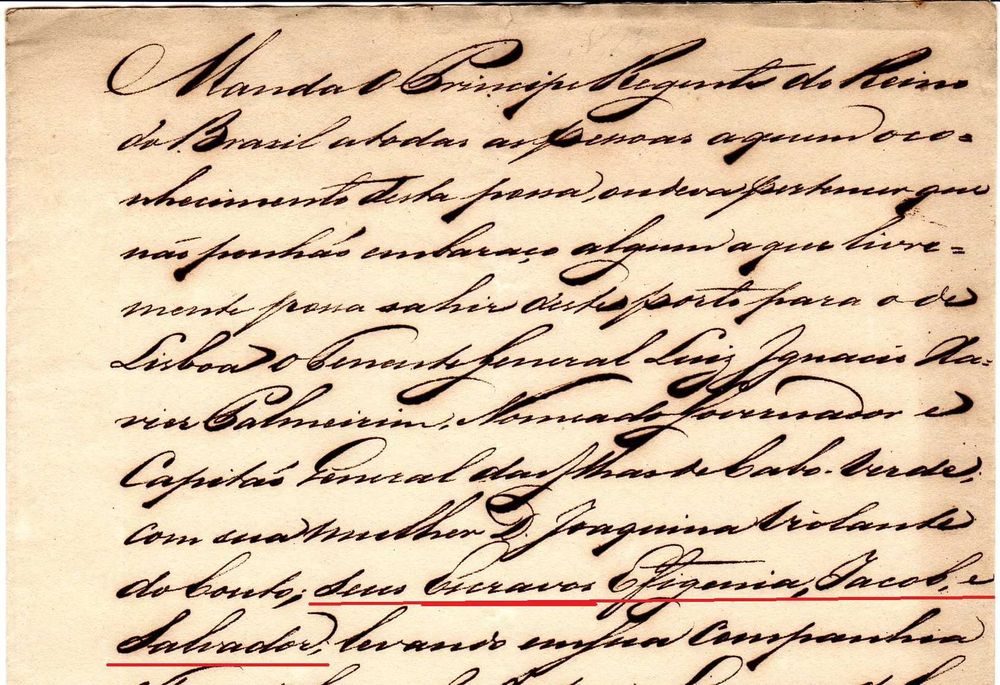 Manda O Principe Regente do Reino
do Brazil a todas as pessoas a quem o co=
nhecimento desta possa, ou deva pertencer que
não ponhão embaraço algum a que livre=
mente possa sahir deste porto para o de
Lisboa o Tenente General Luiz Ignacio Xa=
vier Palmeirim, Nomeado Governador e
Capitão General das Ilhas de Cabo-Verde,
com sua mulher D. Joaquina Violante
do Couto; seus Escravos Effigenia, Jacob, e
Salvador; levando em sua Companhia